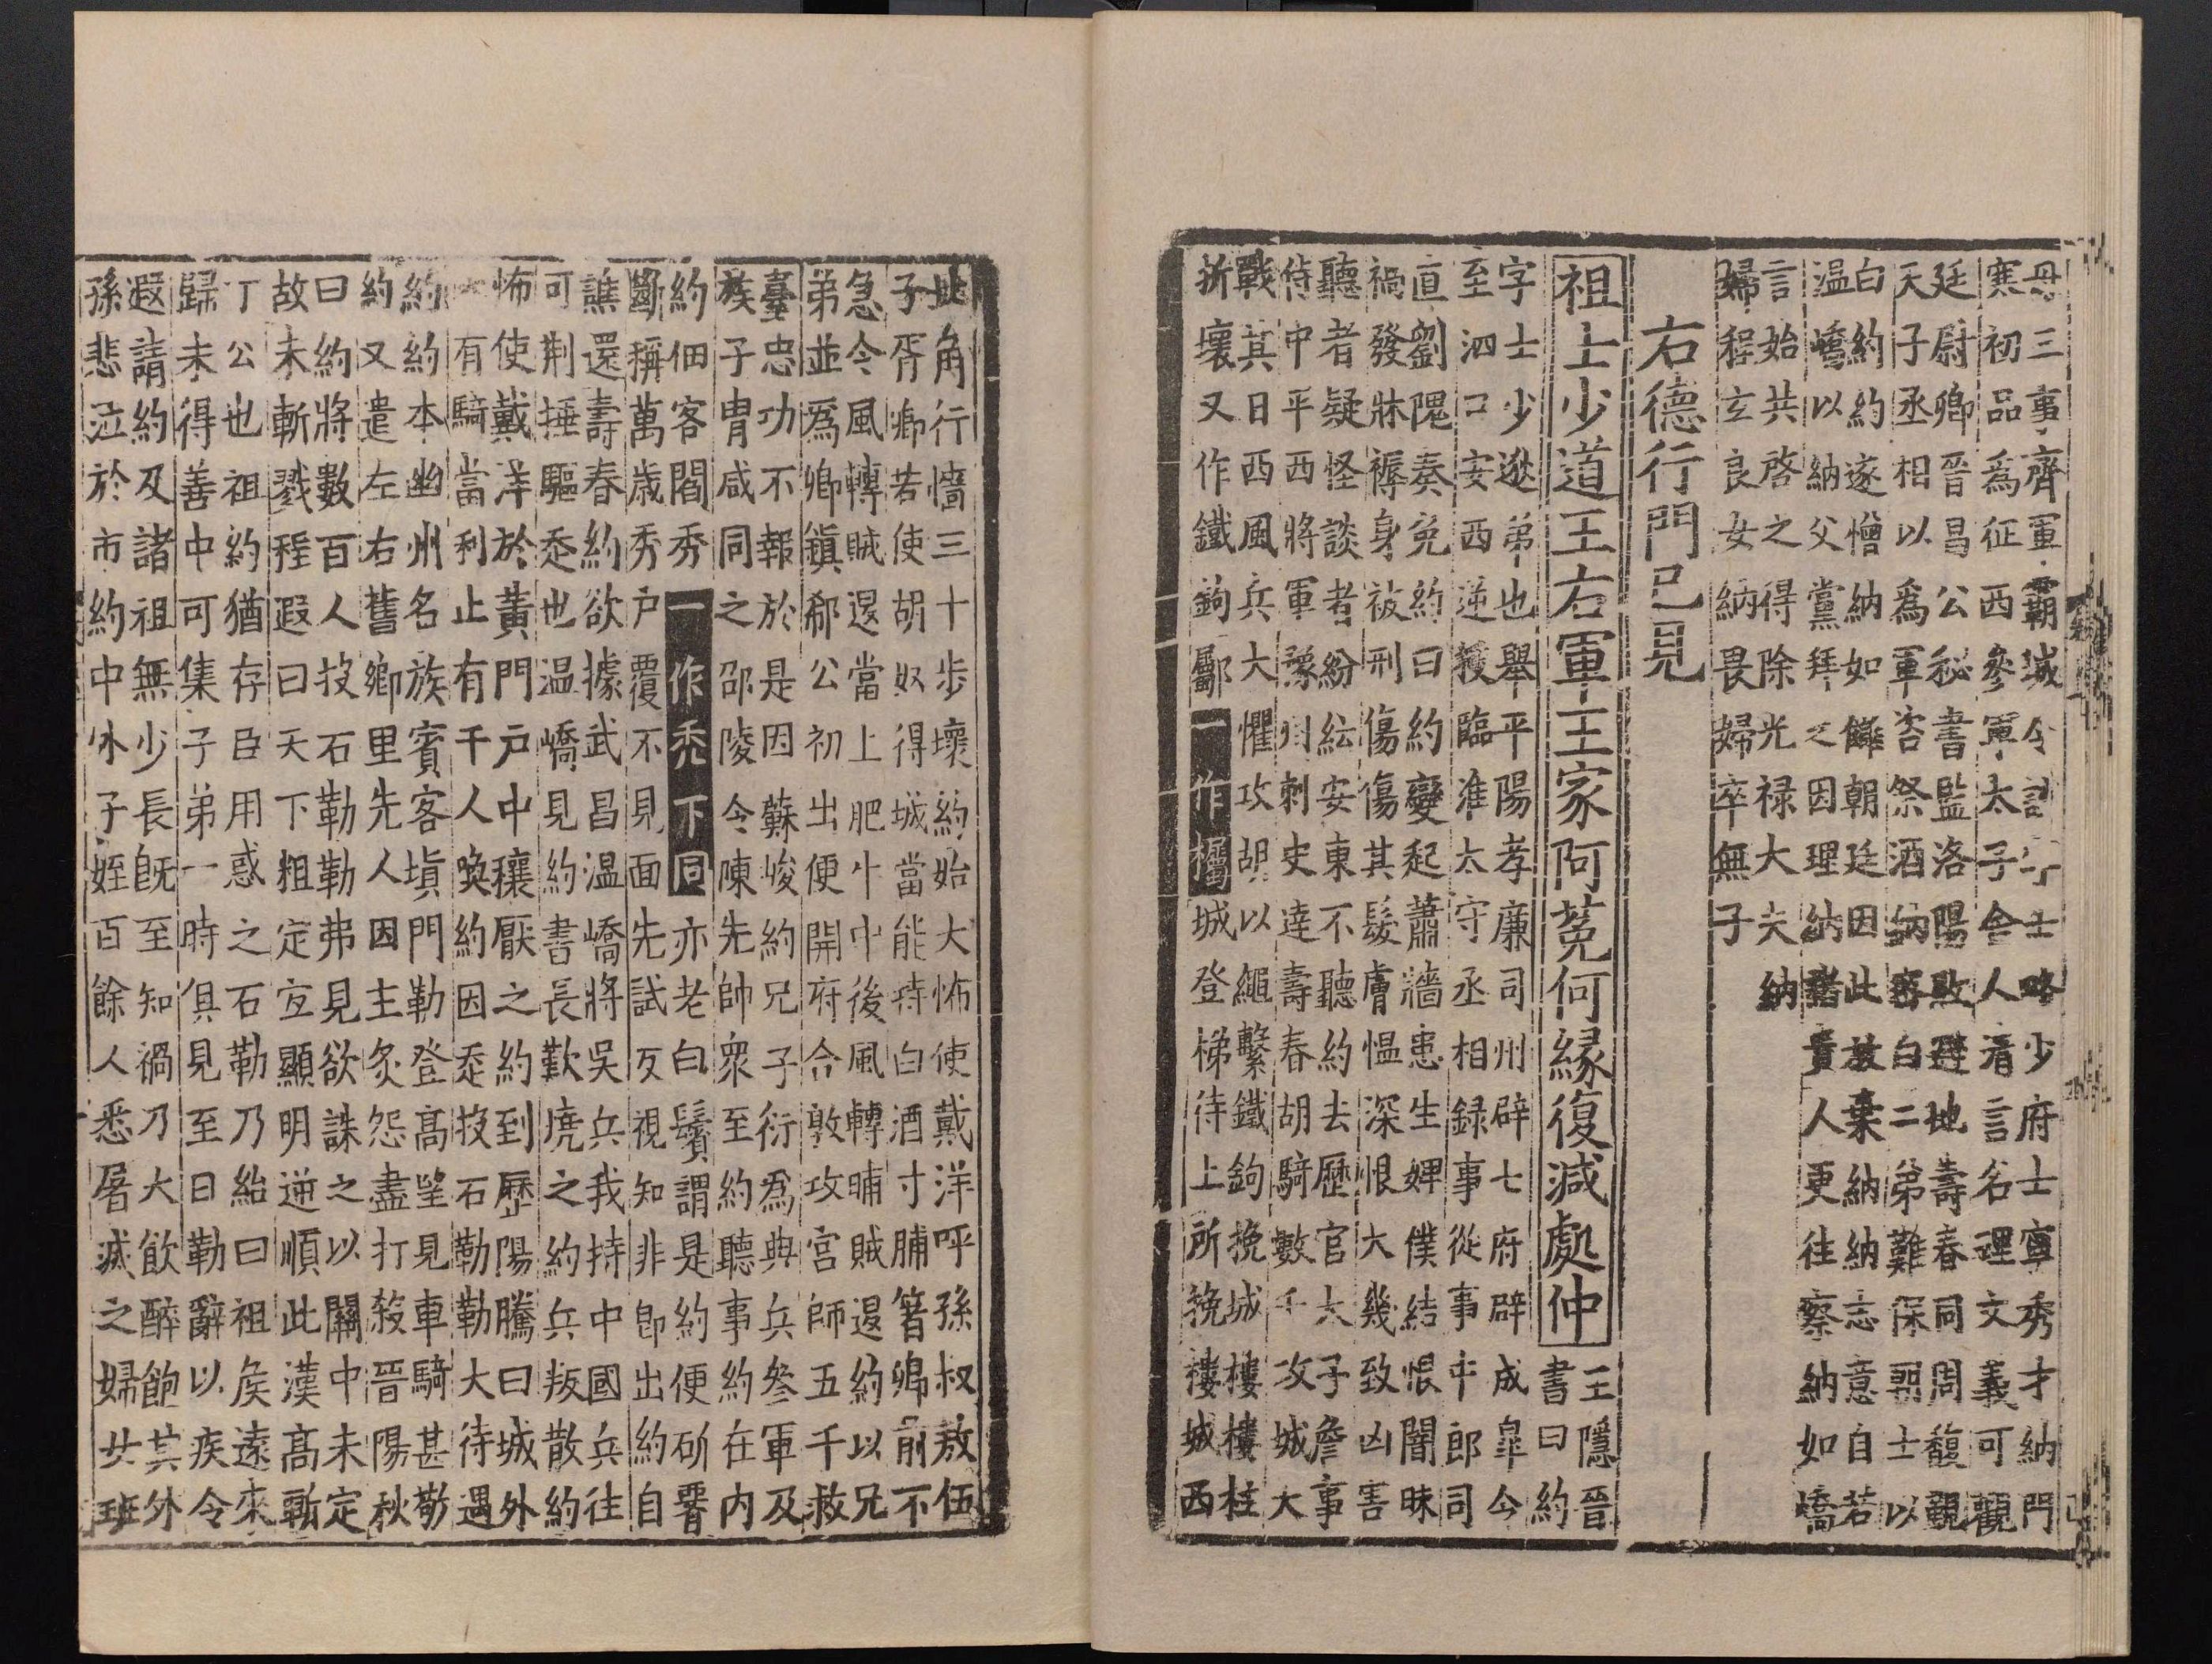 毋三事齊軍霸城令 士略少府士寧秀才納門
寒初品為征西參軍太子舍人有言名理文義可觀
廷尉卿晉昌公秘書監洛陽敗避地壽春同周馥觀
天子丞相以為軍咨祭酒納密白二弟難保朝士以
白約約遂憎納如讎朝廷因此放棄納納志意自若
温嶠以納父黨拜之因理納 貴人更往察納如嶠
言始共啓之得除光禄大夫納
婦程玄良女納畏婦卒無子
右德行門已見
祖士少道王右軍王家阿菟何緣復減處仲
王隱晉
書曰約
字士少逖弟也舉平陽孝廉司州辟七府辟成皐令
至泗口安西逆援臨淮太守丞相録事從事中郎司
直劉隗奏免約曰約變起蕭牆患生婢僕結恨闇昧
禍發牀褥身被刑傷傷其髮膚愠深恨大幾致凶害
聽者疑怪談者紛紜安東不聽約去歷官太子詹事
侍中平西將軍豫州刺史逹壽春胡騎數千攻城大
戰其日西風兵大懼攻胡以繩繫鐵鉤挽城樓樓柱
折壞又作鐵鉤斸一作欘城登梯待上所挽樓城西
北角行墻三十步壞約始大怖使戴洋呼孫叔敖伍
子胥鄉若使胡奴得城當能持白酒寸脯着鄉前不
急令風轉賊退當上肥牛中後風轉晡賊退約以兄
弟並為鄉鎮郗公初出便開府合敦攻宫師五千救
臺忠功不報於是因蘇峻約兄子衍為典兵參軍及
族子胄咸同之邵陵令陳先帥衆至約聽事約在内
約佃客閻秀一作禿下同亦老白鬢謂是約便斫䁔
斷稱萬歳秀户覆不見面先試反視知非即出約自
譙還壽春約欲據武昌温嶠將吴兵我持中國兵往
可荆捶驅烝也温嶠見約書長歎虎之約兵叛散約
怖使戴洋於黄門户中穰厭之約到歷陽騰曰城外
大有騎當利止有千人喚約因烝投石勒勒大待遇
約約本幽州名族賓客塡門勒登高望見車騎甚敬
約又遣左右舊鄉里先人因主炙怨盡打殺晉陽秋
曰約將數百人投石勒勒弗見欲誅之以關中未定
故未斬戮程遐曰天下粗定宜顯明逆順此漢高斬
丁公也祖約猶存臣用惑之石勒乃紿曰祖侯遠來
歸未得善中可集子弟一時俱見至日勒辭以疾令
遐請約及諸祖無少長旣至知禍乃大飲醉飽其外
孫悲泣於市約中外子姪百餘人悉屠滅之婦女班